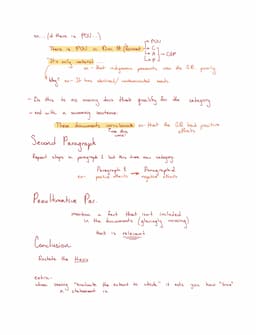 ex... (if there is POV...)
→ POV
There is POV in Doc # (because
→ C
→ A
→ P
It's only natural...
ex - that indigenous peasants view the GR poorly
Why? ex - It has started/
- Do this to as many docs that qualify for the category
- end with a summary sentence.
These documents corroborate ex - that the GR had positive
effects
Second Paragraph
Repeat steps in paragraph 1 but this time new category.
Paragraph 1 → Paragraph 2
ex- positive effects negative effects
Penultimative Par.
mention a fact that isn't included
in the documents (glaringly missing)
that is relevant
Conclusion
Restate the thesis
extra-
when seeing "evaluate the extent to which" it asks you how "true"
a statement is